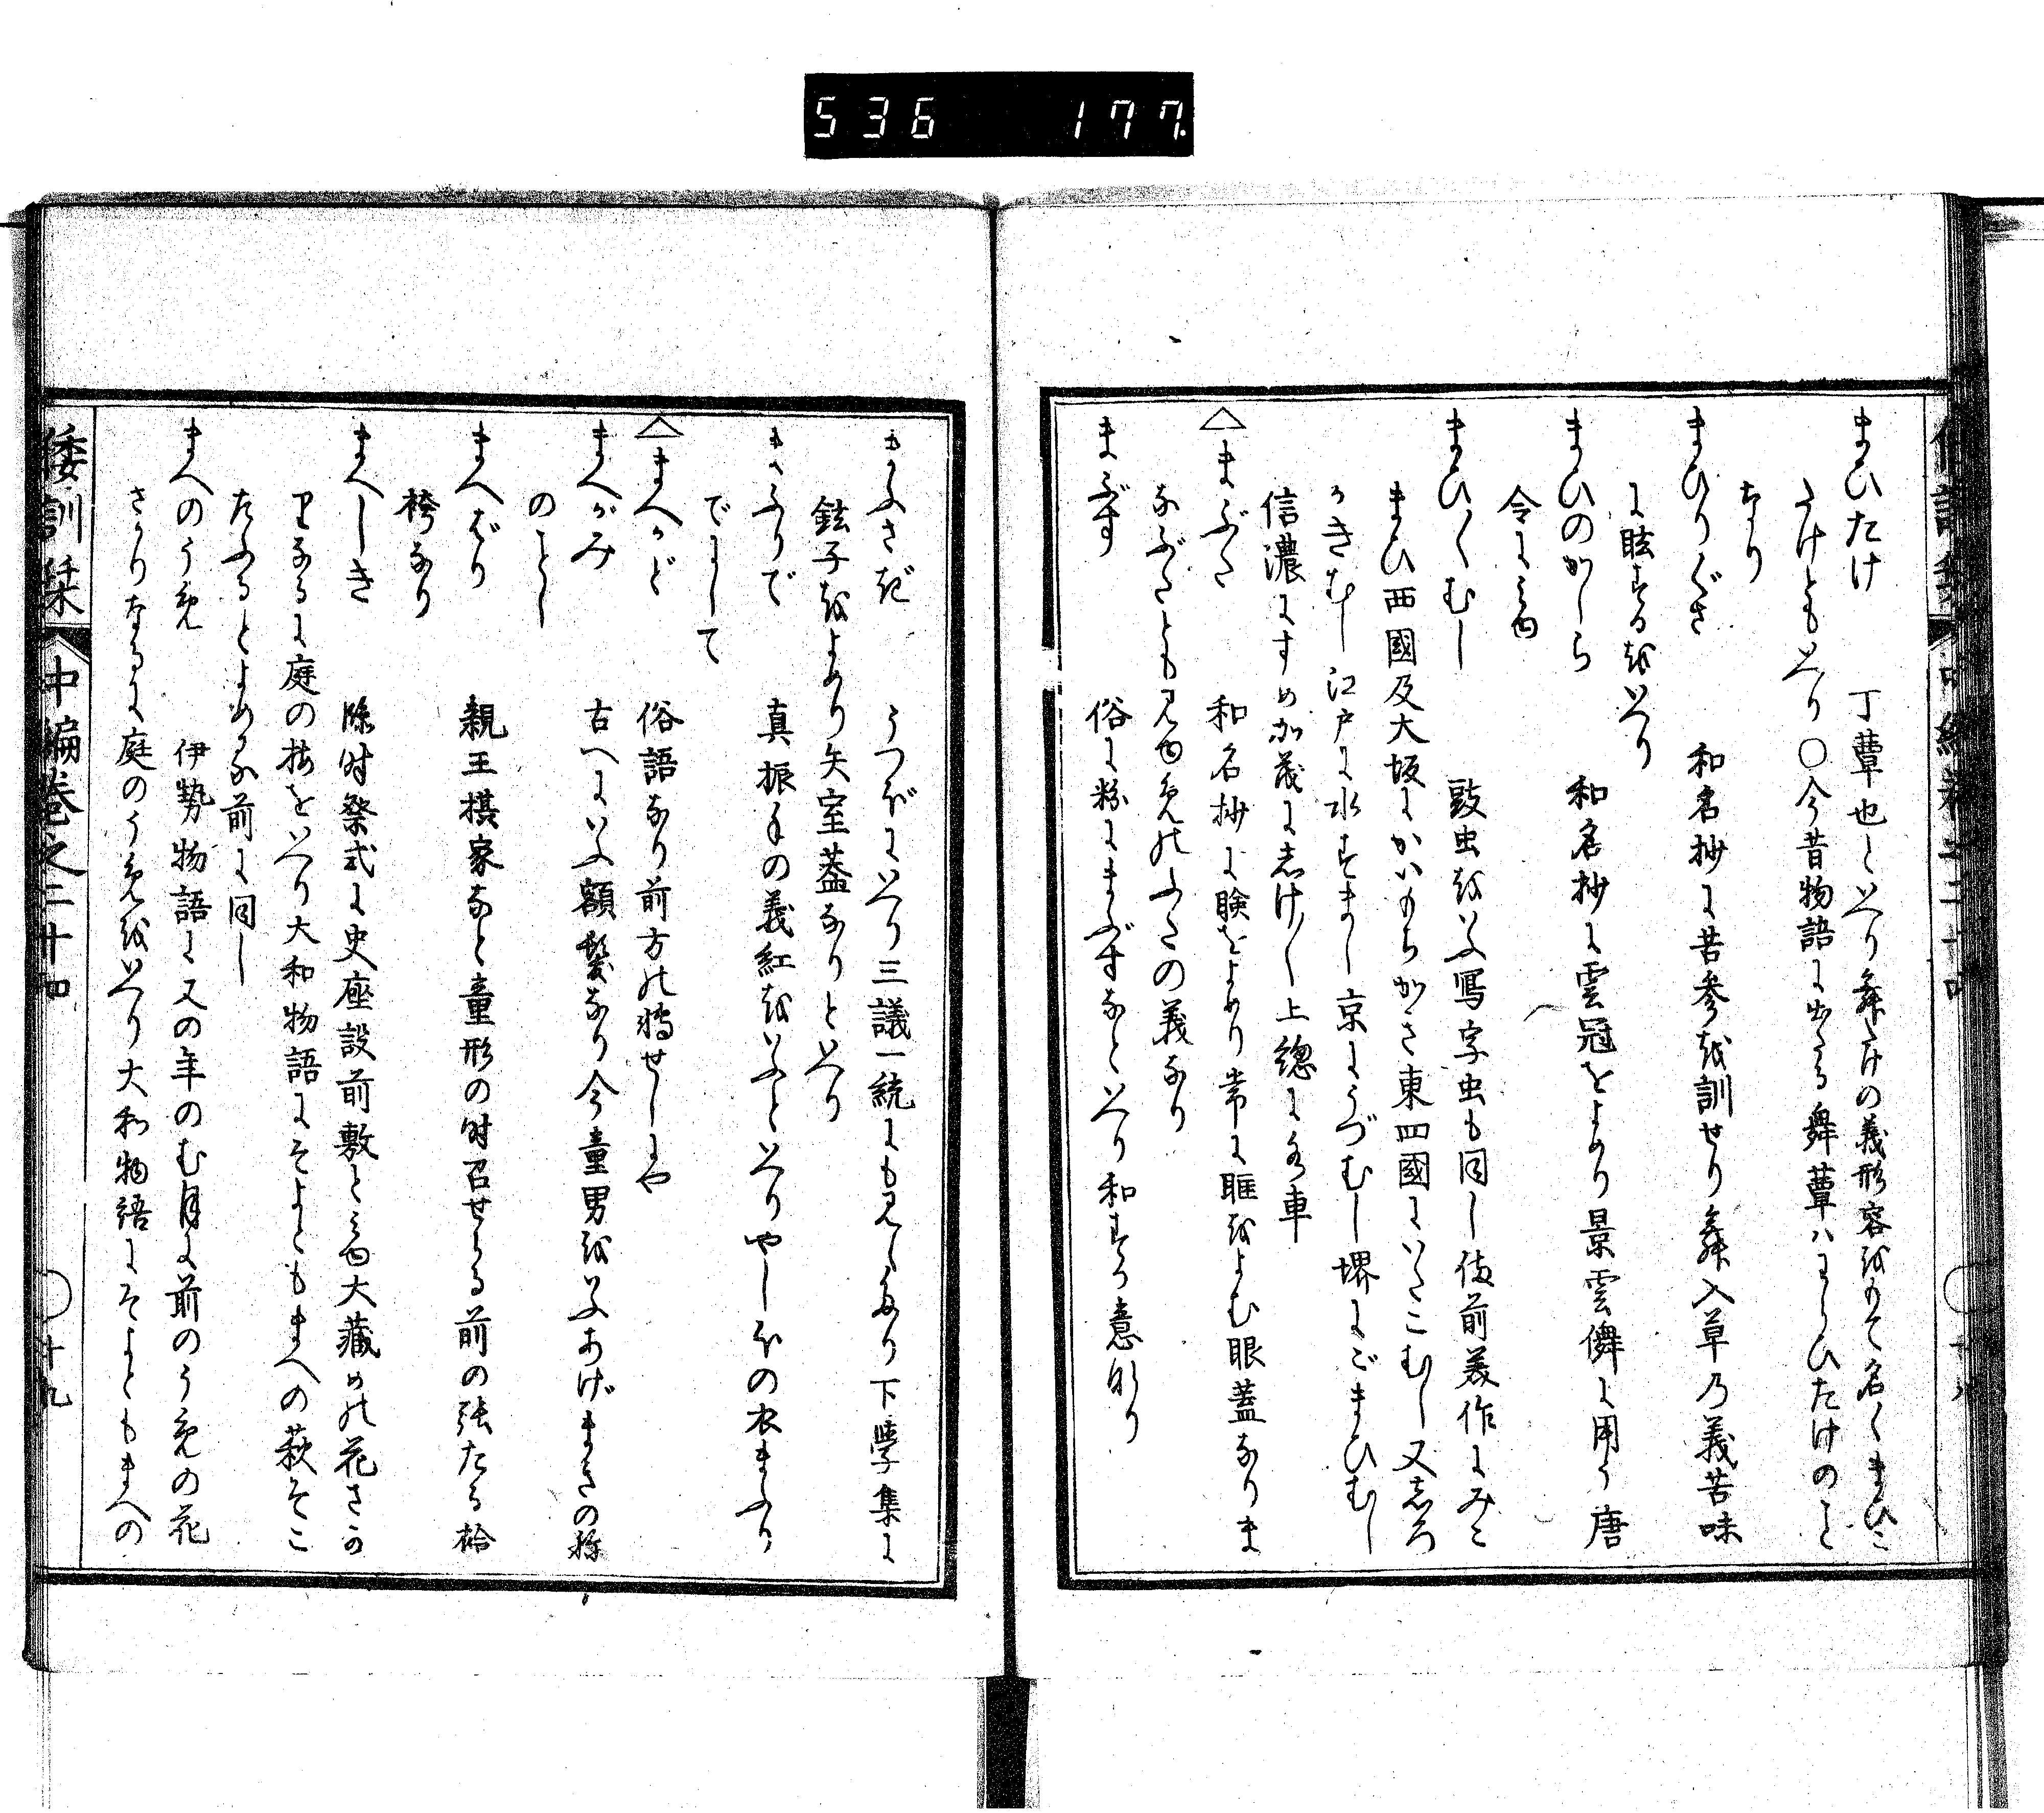 536 177
まひたけ　丁蕈也といへり舞たけの義形容をもて名くまひこ
たけともいへり○今昔物語に出たる舞蕈ハわらひたけのこと
なり
まひりぐさ　和名抄に苦参を訓せり舞入草乃義苦味
に眩するをいへり
まひのかしら　和名抄に雲冠をよめり景雲儛に用う唐
令に見ゆ
まひ〱むし　豉虫をいふ寫字虫も同し備前美作にみこ
まひ西國及大坂にかいもちかき東四國にいたこむし又志ろ
かきむし江戸に水すまし京にうづむし堺にごまひむし
信濃にすめ加茂に志け〱上總に水車
△まぶた　和名抄に瞼をよめり常に眶をよむ眼蓋なりま
なぶたとも見ゆ免のふたの義なり
まぶす　俗に粉にまぶすなといへり和する意なり
まふさぎ　うつぼにいへり三議一統にも見えたり下學集に
鉉子をよめり矢室蓋なりといへり
まふりで　真振手の義紅をいふといへりやしほの衣まふり
でにして
△まへかど　俗語なり前方の轉せしにや
まへがみ　古へにいふ額髮なり今童男をいふあげまきの称
のことし
まへばり　親王摂家なと童形の时召せる前の張たる袷
袴なり
まへしき　臨时祭式に史座設前敷と見ゆ大藏かの花さか
りなるに庭の梅をいへり大和物語にそよともまへの萩そこ
たふるとよめるも前に同し
まへのうめ　伊勢物語に又の年のむ月に前のうめの花
さかりなるに庭のうめをいへり大和物語にそよともまへの
倭訓栞　中編巻之二十四　十九